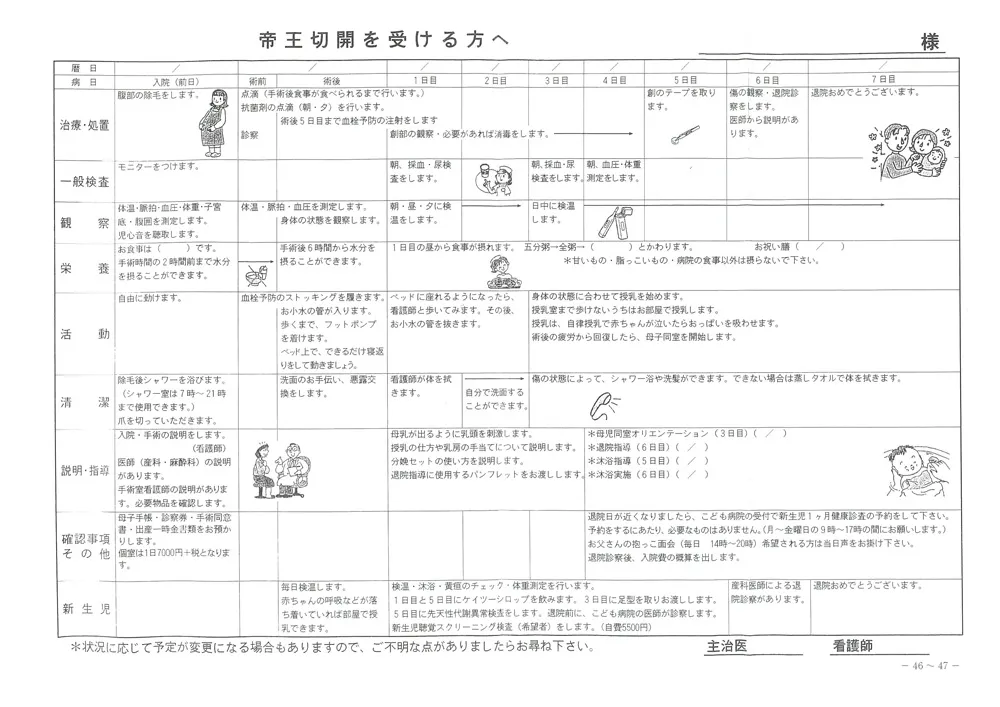 帝王切開を受ける方へ
様
暦 日 ／ ／ ／ ／ ／ ／ ／ ／ ／
病 日 入院（前日） 術前 術後 1日目 2日目 3日目 4日目 5日目 6日目 7日目
治療・処置
腹部の除毛をします。
点滴（手術後食事が食べられるまで行います。）
抗菌剤の点滴（朝・夕）を行います。
術後５日目まで血栓予防の注射をします
診察
創部の観察・必要があれば消毒をします。
創のテープを取り
ます。
傷の観察・退院診
察をします。
医師から説明があ
ります。
退院おめでとうございます。
一般検査
モニターをつけます。
朝、採血・尿検
査をします。
朝、採血・尿
検査をします。
朝、血圧・体重
測定をします。
観 察
体温・脈拍・血圧・体重・子宮
底・腹囲を測定します。
児心音を聴取します。
体温・脈拍・血圧を測定します。
身体の状態を観察します。
朝・昼・夕に検
温をします。
日中に検温
します。
栄 養
お食事は（　　）です。
手術時間の２時間前まで水分
を摂ることができます。
手術後６時間から水分を
摂ることができます。
１日目の昼から食事が摂れます。 五分粥→全粥→（　　　）とかわります。
お祝い膳（　／　）
＊甘いもの・脂っこいもの・病院の食事以外は摂らないで下さい。
活 動
自由に動けます。
血栓予防のストッキングを履きます。
お小水の管が入ります。
歩くまで、フットポンプ
を着けます。
ベッド上で、できるだけ寝返
りをして動きましょう。
ベッドに座れるようになったら、
看護師と歩いてみます。その後、
お小水の管を抜きます。
身体の状態に合わせて授乳を始めます。
授乳室まで歩けないうちはお部屋で授乳します。
授乳は、自律授乳で赤ちゃんが泣いたらおっぱいを吸わせます。
術後の疲労から回復したら、母子同室を開始します。
清 潔
除毛後シャワーを浴びます。
（シャワー室は７時～21時
まで使用できます。）
爪を切っていただきます。
洗面のお手伝い、悪露交
換をします。
看護師が体を拭
きます。
自分で洗面する
ことができます。
傷の状態によって、シャワー浴や洗髪ができます。できない場合は蒸しタオルで体を拭きます。
説明・指導
入院・手術の説明をします。
（看護師）
医師（産科・麻酔科）の説明
があります。
手術室看護師の説明がありま
す。必要物品を確認します。
母乳が出るように乳頭を刺激します。
授乳の仕方や乳房の手当てについて説明します。
分娩セットの使い方を説明します。
退院指導に使用するパンフレットをお渡しします。
＊母児同室オリエンテーション（３日目）（　／　）
＊退院指導（６日目）（　／　）
＊沐浴指導（５日目）（　／　）
＊沐浴実施（６日目）（　／　）
確認事項
そ の 他
母子手帳・診察券・手術同意
書・出産一時金書類をお預か
りします。
個室は1日7000円＋税となりま
す。
退院日が近くなりましたら、こども病院の受付で新生児１ヶ月健康診査の予約をして下さい。
予約をするにあたり、必要なものはありません。（月～金曜日の９時～17時の間にお願いします。）
お父さんの抱っこ面会（毎日　14時～20時）希望される方は当日声をお掛け下さい。
退院診察後、入院費の概算を出します。
新 生 児
毎日検温します。
赤ちゃんの呼吸などが落
ち着いていれば部屋で授
乳できます。
検温・沐浴・黄疸のチェック・体重測定を行います。
１日目と５日目にケイツーシロップを飲みます。３日目に足型を取りお渡しします。
５日目に先天性代謝異常検査をします。退院前に、こども病院の医師が診察します。
新生児聴覚スクリーニング検査（希望者）をします。（自費5500円）
産科医師による退
院診察があります。
退院おめでとうございます。
＊状況に応じて予定が変更になる場合もありますので、ご不明な点がありましたらお尋ね下さい。
主治医
看護師
－ 46 ～ 47 －